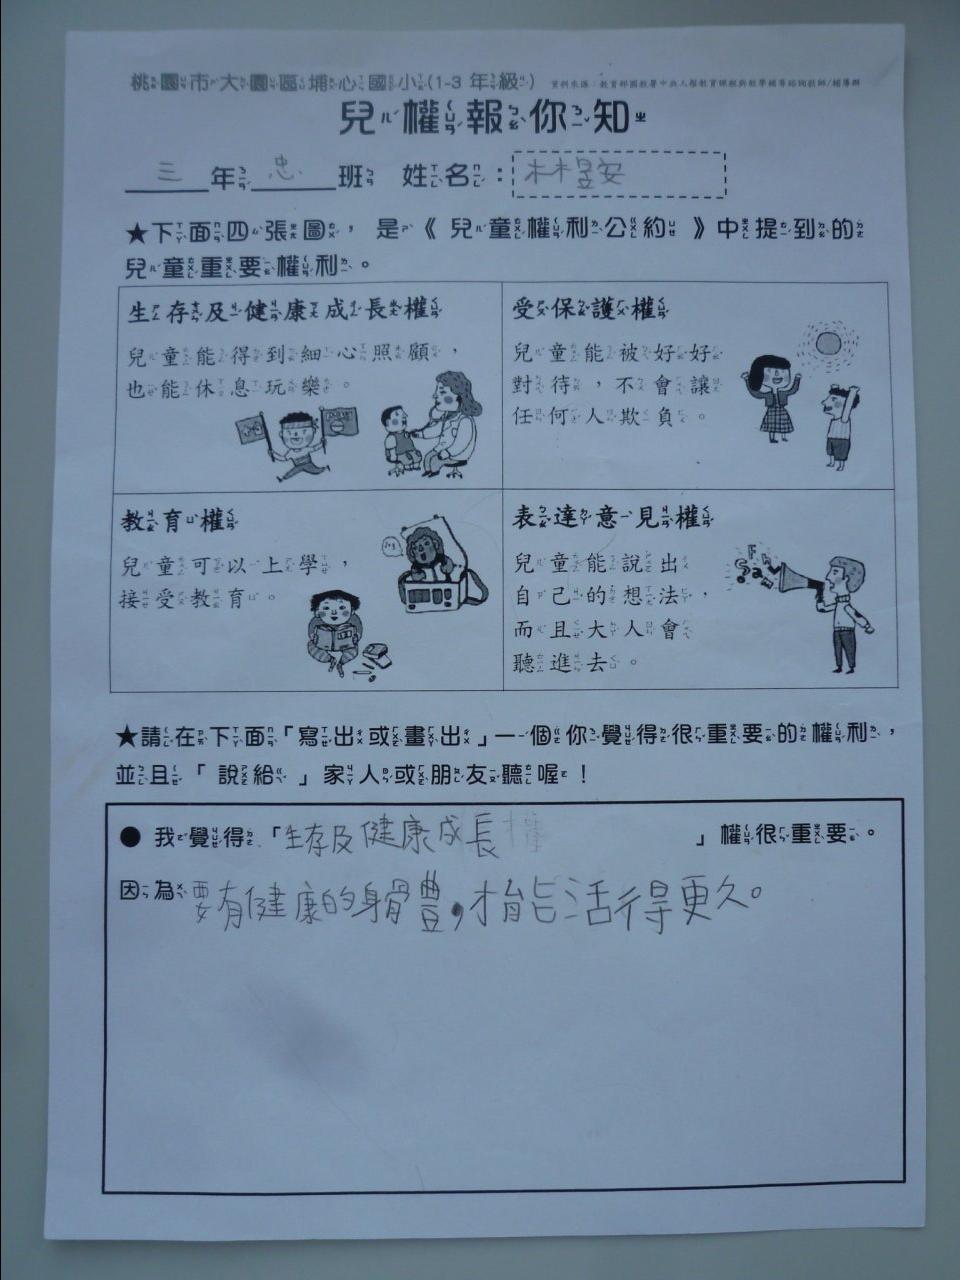 桃園市大園區埔心國小(1-3年級) 資料來源：教育部國教署中央人權教育課程與教學輔導諮詢教師/輔導群
兒權報你知
三年忠班 姓名：林昱安
★下面四張圖，是《兒童權利公約》中提到的
兒童重要權利。
生存及健康成長權
兒童能得到細心照顧，
也能休息玩樂。
受保護權
兒童能被好好
對待，不會讓
任何人欺負。
教育權
兒童可以上學，
接受教育。
表達意見權
兒童能說出
自己的想法，
而且大人會
聽進去。
★請在下面「寫出或畫出」一個你覺得很重要的權利，
並且「說給」家人或朋友聽喔！
●我覺得「生存及健康成長權」權很重要。
因為要有健康的身體，才能活得更久。